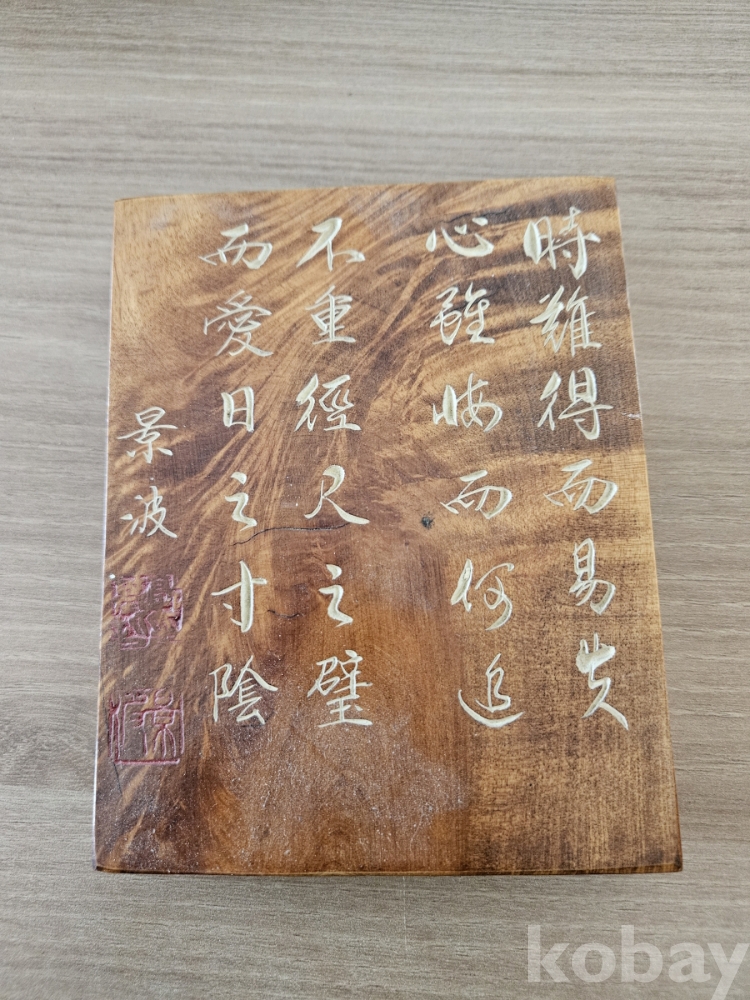 時難得而易失
心雖悔而何追
不重徑尺之璧
而愛日之寸陰
景波
kobay